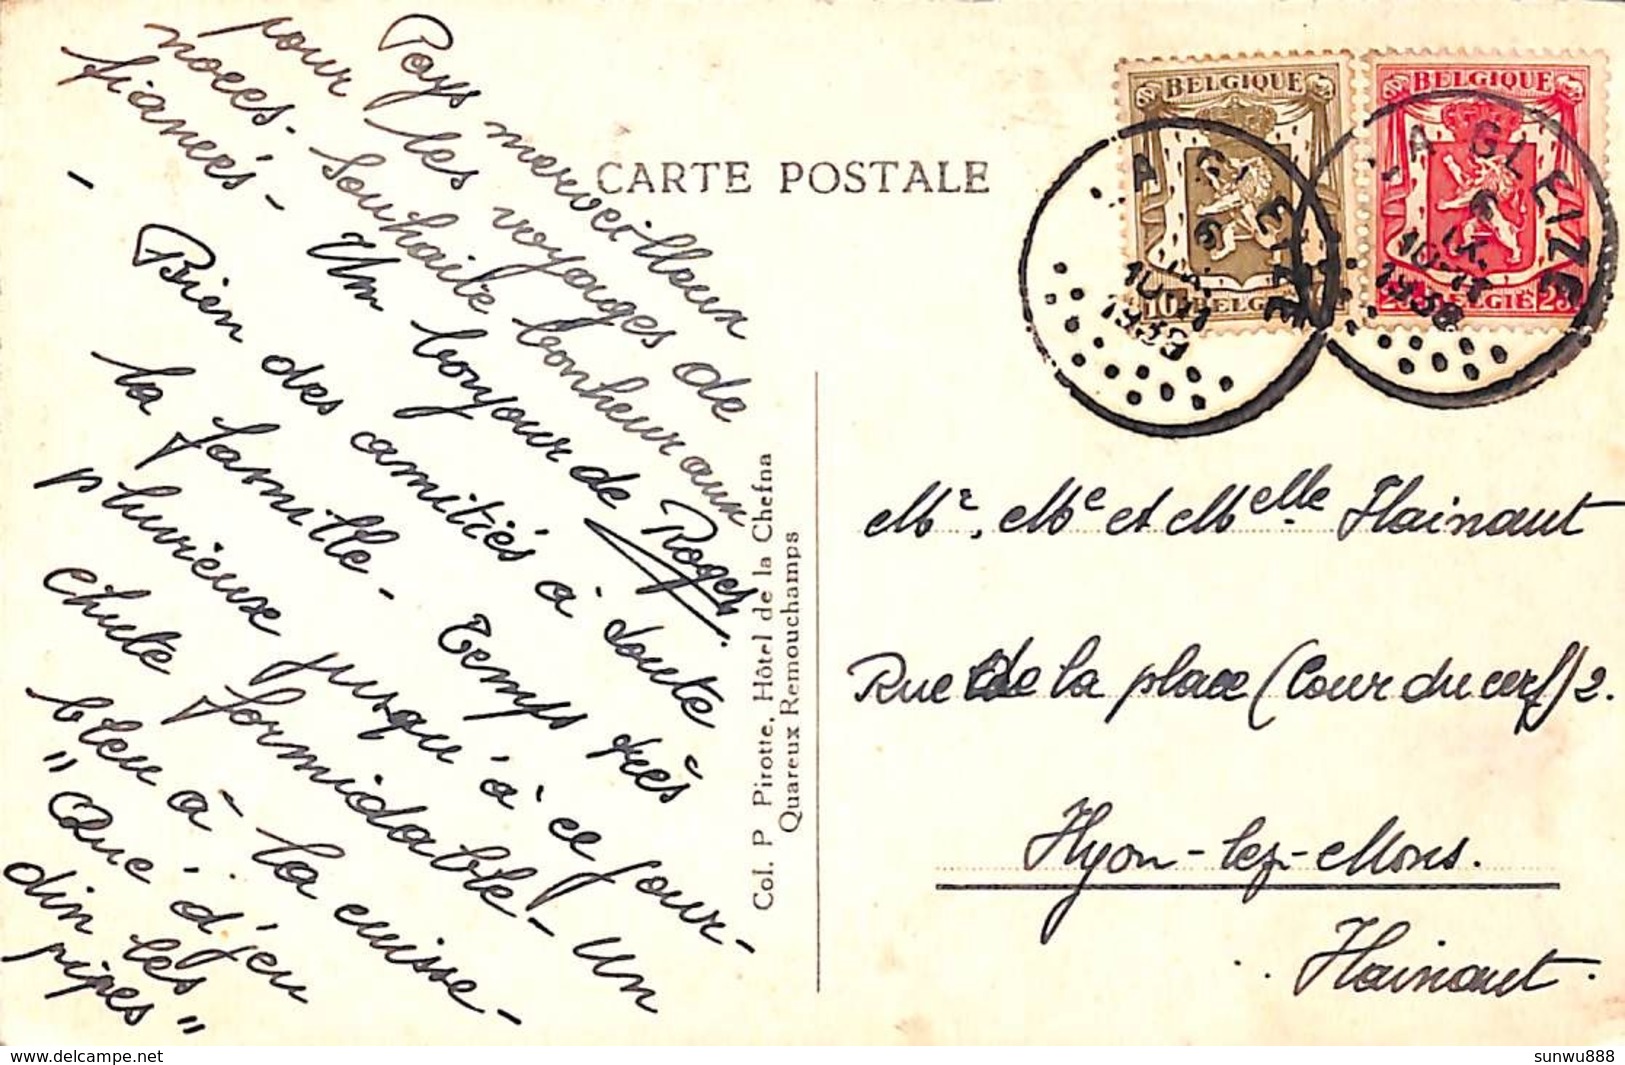 Pays merveilleux
pour les voyages de
noces - Souhaite bonheur aux
fiancés - Un bonjour de Roger.
- Bien des amitiés à toute
la famille - Temps très
pluvieux jusqu'à ce jour -
chute formidable - Un
bleu à la cuisse -
"Que.. d'jeu
din les
pipes"
CARTE POSTALE
Col. P Pirotte, Hôtel de la Chefna
Quareux Remouchamps
BELGIQUE
10 BELGIË
BELGIQUE
25 BELGIË 25
LA GLEIZE
6
IX
10-11
1938
LA GLEIZE
6
IX
10-11
1938
Mr, Me et Melle Hainaut
Rue de la place (Cour du cerf) 2.
Hyon-lez-Mons.
Hainaut.
www.delcampe.net
sunwu888